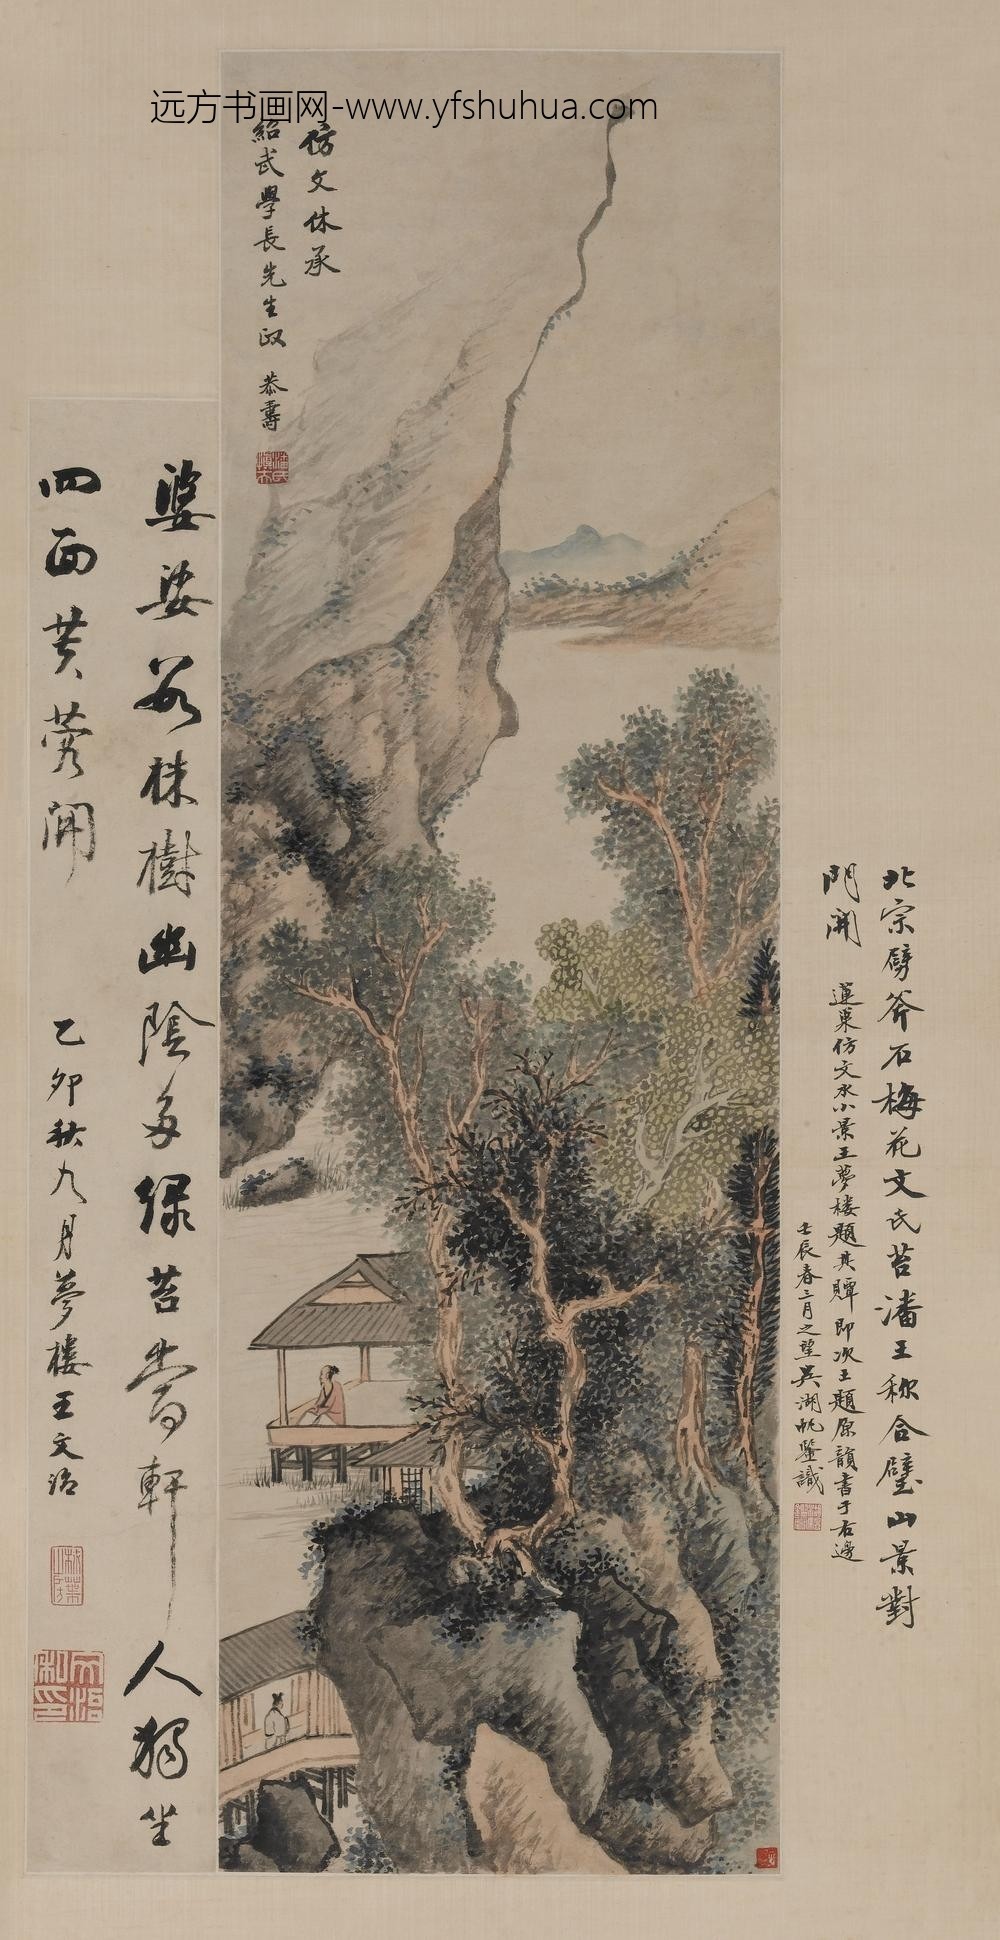 远方书画网-www.yfshuhua.com
仿文休承
紹武學長先生政 恭壽
北宗劈斧石梅花文氏苔潘王稱合璧山景對
門開 蓮巢仿文水小景王夢樓題其嶂即次王題原韻書于右邊
壬辰春三月之望吳湖帆鑒識
婆娑數株樹幽陰多綠苔當軒人獨坐
四面芙蓉開 乙卯秋九月夢樓王文治